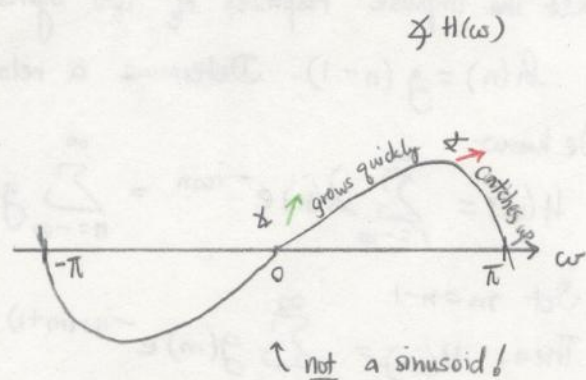 ∡ H(ω)
∡ grows quickly ∡ catches up
-π 0 π ω
↑ not a sinusoid!